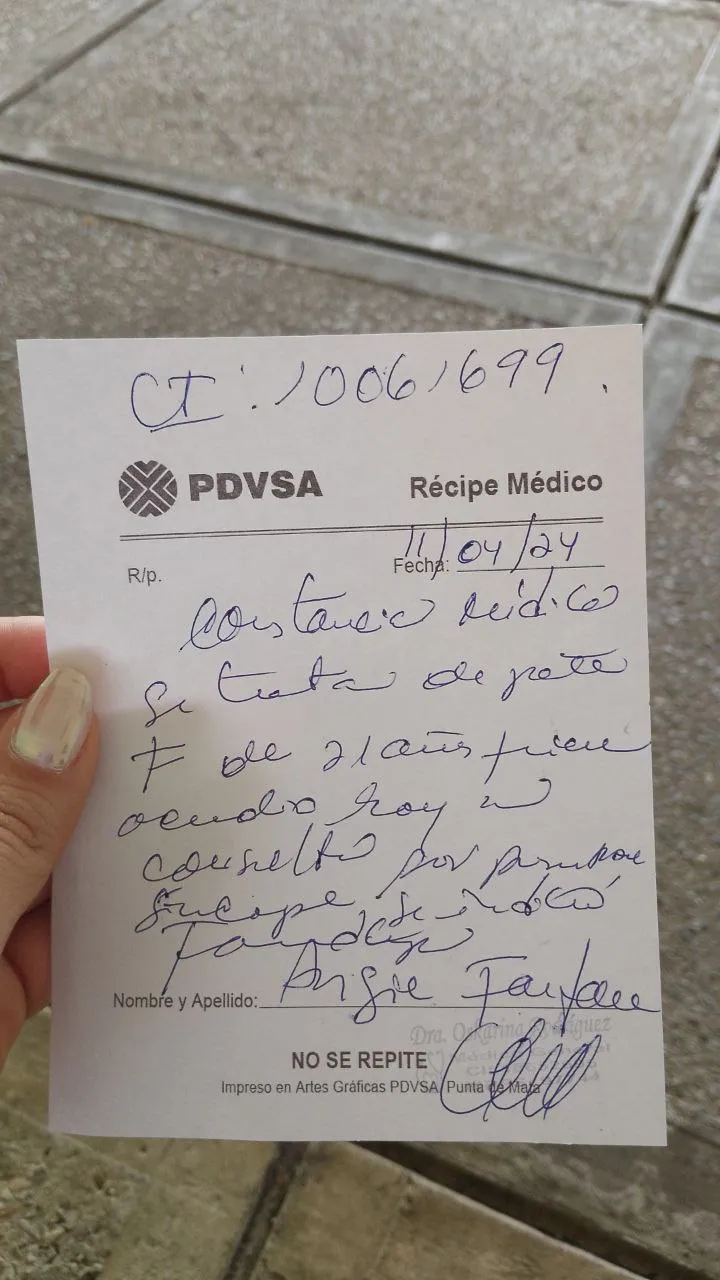 CI: 10061699.
PDVSA Récipe Médico
R/p. Fecha: 11/04/24
Constancia Médica
Se trata de pcte
F de 21 años quien
acudio hoy a
consulta por presentar
Sincope se indicó
Nombre y Apellido: Angie Farfan
Dra. Oskarina Rodríguez
Médico
NO SE REPITE
Impreso en Artes Gráficas PDVSA, Punta de Mata